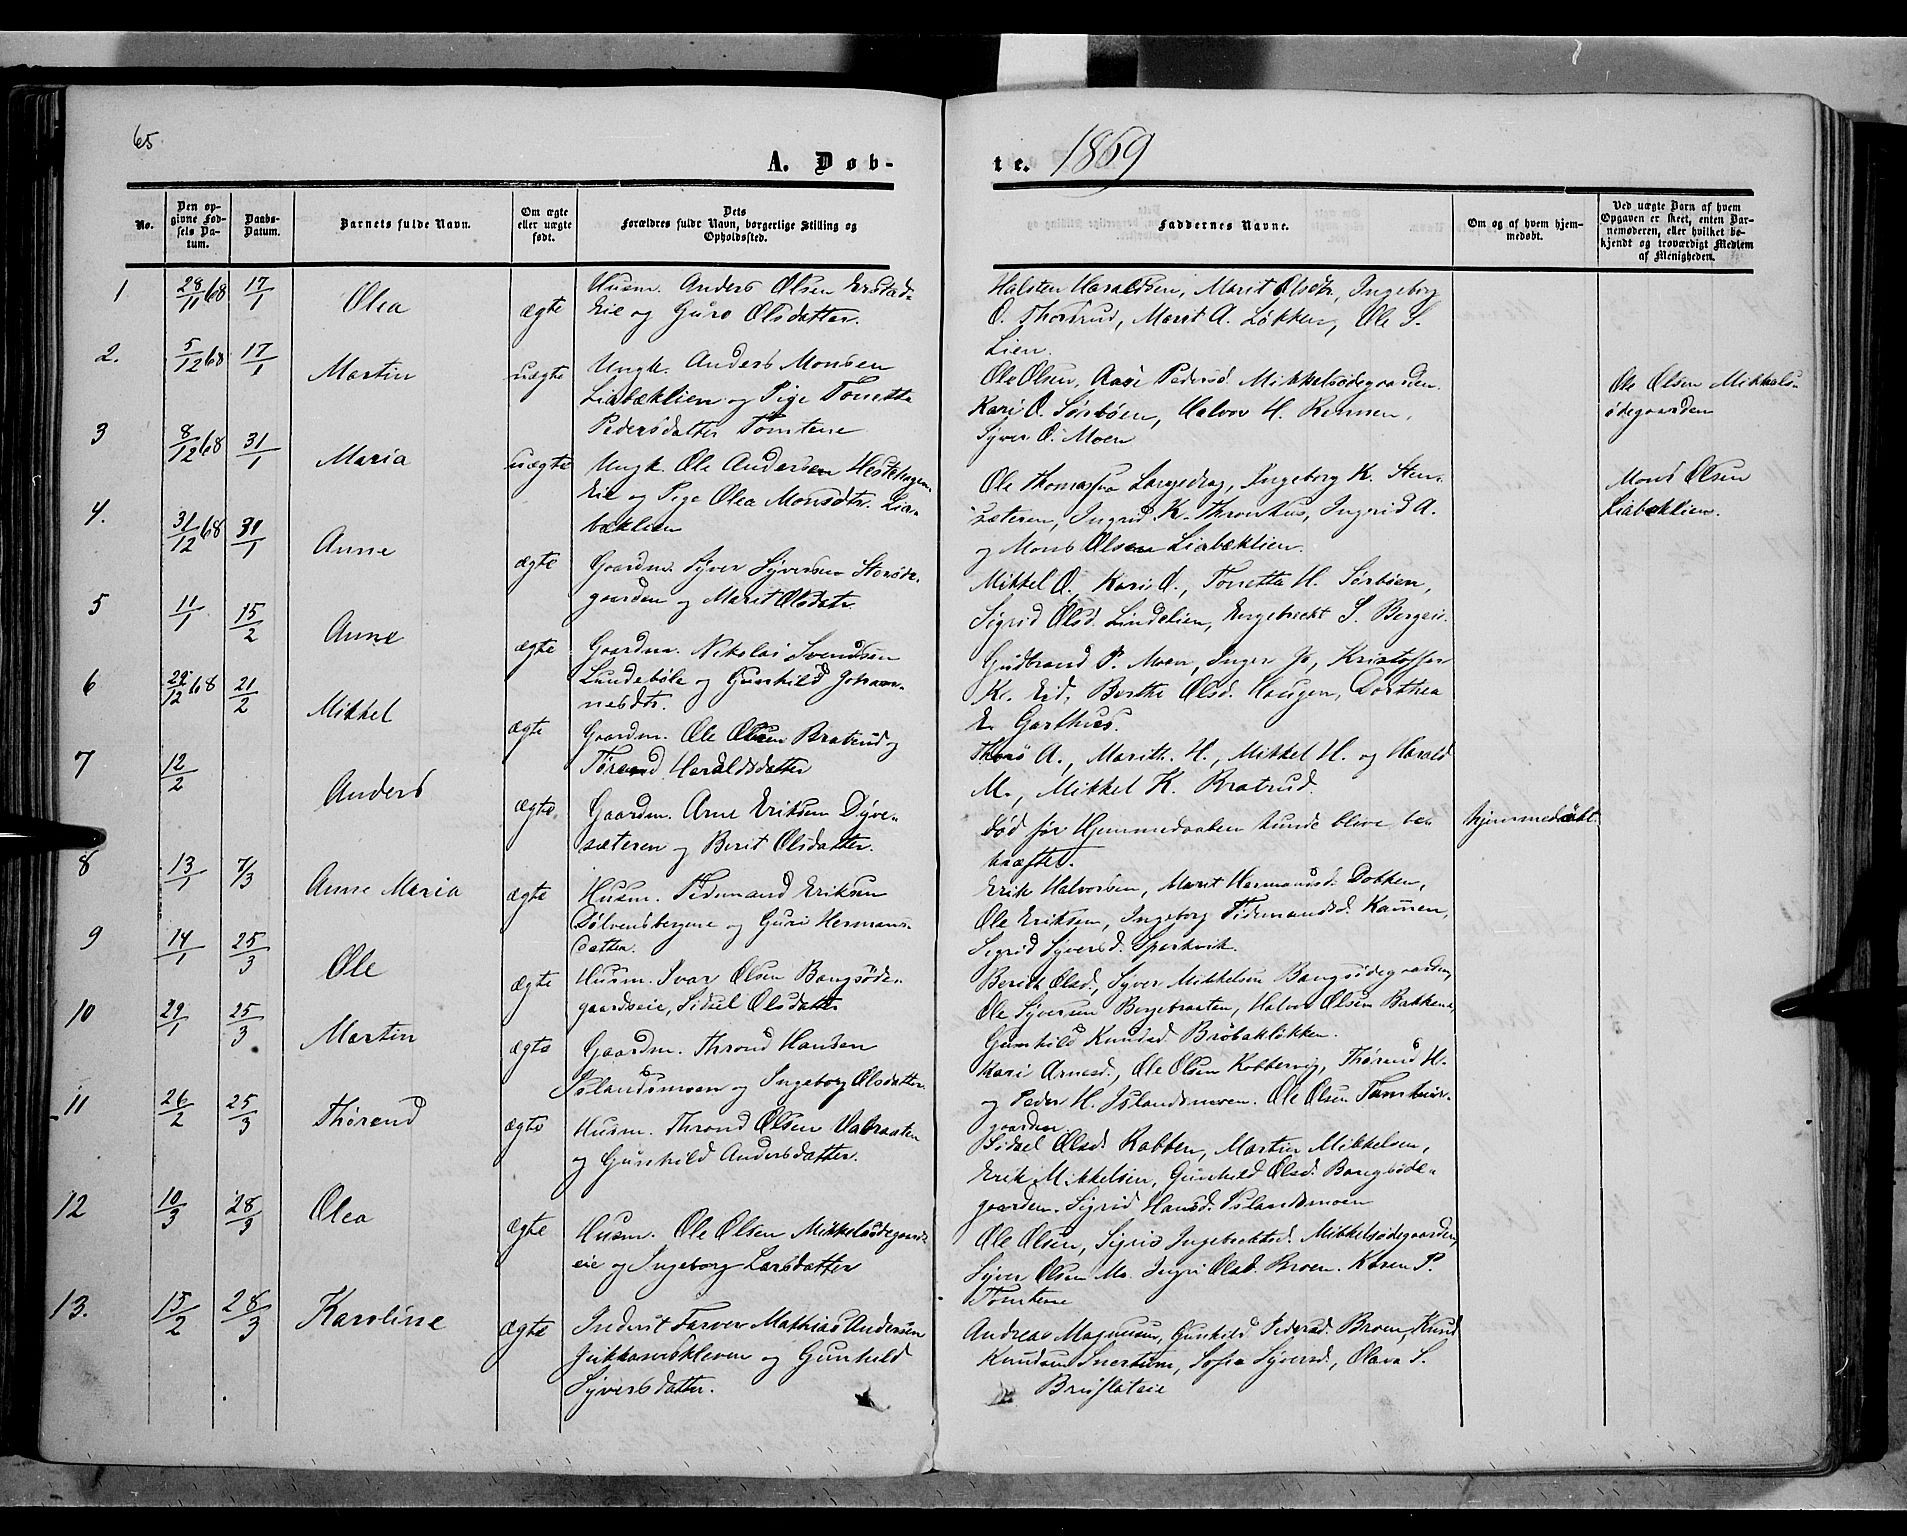 65
A. Døb-
te. 1869
No.
Den opgivne Fødsels Datum.
Daabs-Datum.
Barnets fulde Navn.
Om ægte eller uægte født.
Dets Forældres fulde Navn, borgerlige Stilling og Opholdssted.
Faddernes Navne.
Om og af hvem hjemmedøbt.
Ved uægte Børn af hvem Opgaven er skeet, enten Barnemoderen, eller hvilket bekjendt og troværdigt Medlem af Menigheden.
1 28/11 68 17/1 Olea ægte
Husm. Anders Olsen
Eie og Guro Olsdatter.
Halsten Haraldsen, Marit Olsdtr, Ingeborg
O. Thostrud, Marit A. Løkken, Ole S.
Lien.
2. 5/12 68 17/1 Martin uægte
Ungk. Anders Monsen
Liabæklien og Pige Tonetta
Pedersdatter Tomtene
Ole Olsen, Aase Pedersd. Mikkelsødegaarden.
Kari O. Sørbøen, Halvor H. Rennen,
Syver O. Moen
Ole Olsen Mikkels-
ødegaarden
3 8/12 68 31/1 Maria uægte
Ungk. Ole Andersen Hestehagen
Eie og Pige Olea Monsdtr. Lia-
bæklien
Ole Thomassen Langedrag, Ingeborg K. Sten-
sæteren, Ingrid K. Throndhus, Ingrid A.
og Mons Olsen Liabæklien.
Mons Olsen
Liabæklien.
4. 31/12 68 31/1 Anne ægte
Gaardm. Syver Syversen Storøde-
gaarden og Marit Olsdatr
Mikkel O., Kari O., Tonetta H. Sørbøen,
Sigrid Olsd. Lindelien, Engebrecht S. Bergeie.
5 11/1 15/2 Anne ægte
Gaardm. Nikolai Svendsen
Lundebøle og Gunhild Johan-
nesdtr.
Gudbrand P. Moen, Inger Jo, Kristoffer
K. Eid, Berthe Olsd. Haugen, Dorthea
E. Garthus.
6 29/12 68 21/2 Mikkel ægte
Gaardm. Ole Olsen Bratrud og
Tørand Haraldsdatter
Thorø A., Marith. H., Mikkel H. og Harald
M., Mikkel K. Bratrud.
7 12/2 Anders ægte
Gaardm. Arne Eriksen Dyve-
sæteren og Berit Olsdatter.
død før Hjemmedaaben kunde blive be-
kræftet.
hjemmedøbt.
8 13/1 7/3 Anne Maria ægte
Husm. Tidemand Eriksen
Tølvensbergene og Guri Hermans-
datter.
Erik Halvorsen, Marit Hermansd. Dokken,
Ole Eriksen, Ingeborg Tidemandsd. Kamen,
Sigrid Syversd. Sperkvik.
9 14/1 25/3 Ole ægte
Husm. Ivar Olsen Bangsøde-
gaardseie, Sidsel Olsdatter
Berith Olsd., Syver Mikkelsen Bangsødegaarden,
Ole Syversen Bergebraaten, Halvor Olsen Bakken,
Gunhild Knudsd Brøbakløkken.
10 29/1 25/3 Martin ægte
Gaardm. Thrond Hansen
Islandsmoen og Ingeborg Olsdatter.
Kari Arnesd., Ole Olsen Kobbervig, Thørend H.
og Peder H. Islandsmoen. Ole Olsen
gaarden.
11 26/2 25/3 Thørend ægte
Husm. Thrond Olsen Valbraaten
og Gunhild Andersdatter.
Sidsel Olsd. Kabben, Martin Mikkelsen,
Erik Mikkelsen, Gunhild Olsd. Bangsøde-
gaarden. Sigrid Hansd. Islandsmoen
12 10/3 28/3 Olea ægte
Husm. Ole Olsen Mikkelsødegaards-
eie og Ingeborg Larsdatter
Ole Olsen, Sigrid Ingebrektsd. Mikkelsødegaarden,
Syver Olsen Mo. Ingri Olsd. Broen. Karen P.
Tomtene
13. 15/2 28/3 Karoline ægte
Inderst Farver Mathias Andersen
og Gunhild
Syversdatter.
Andreas Magnusen, Gunhild Pedersd. Broen, Knud
Knudsen Snertum, Sofia Syversd., Olava S.
Bruflateie